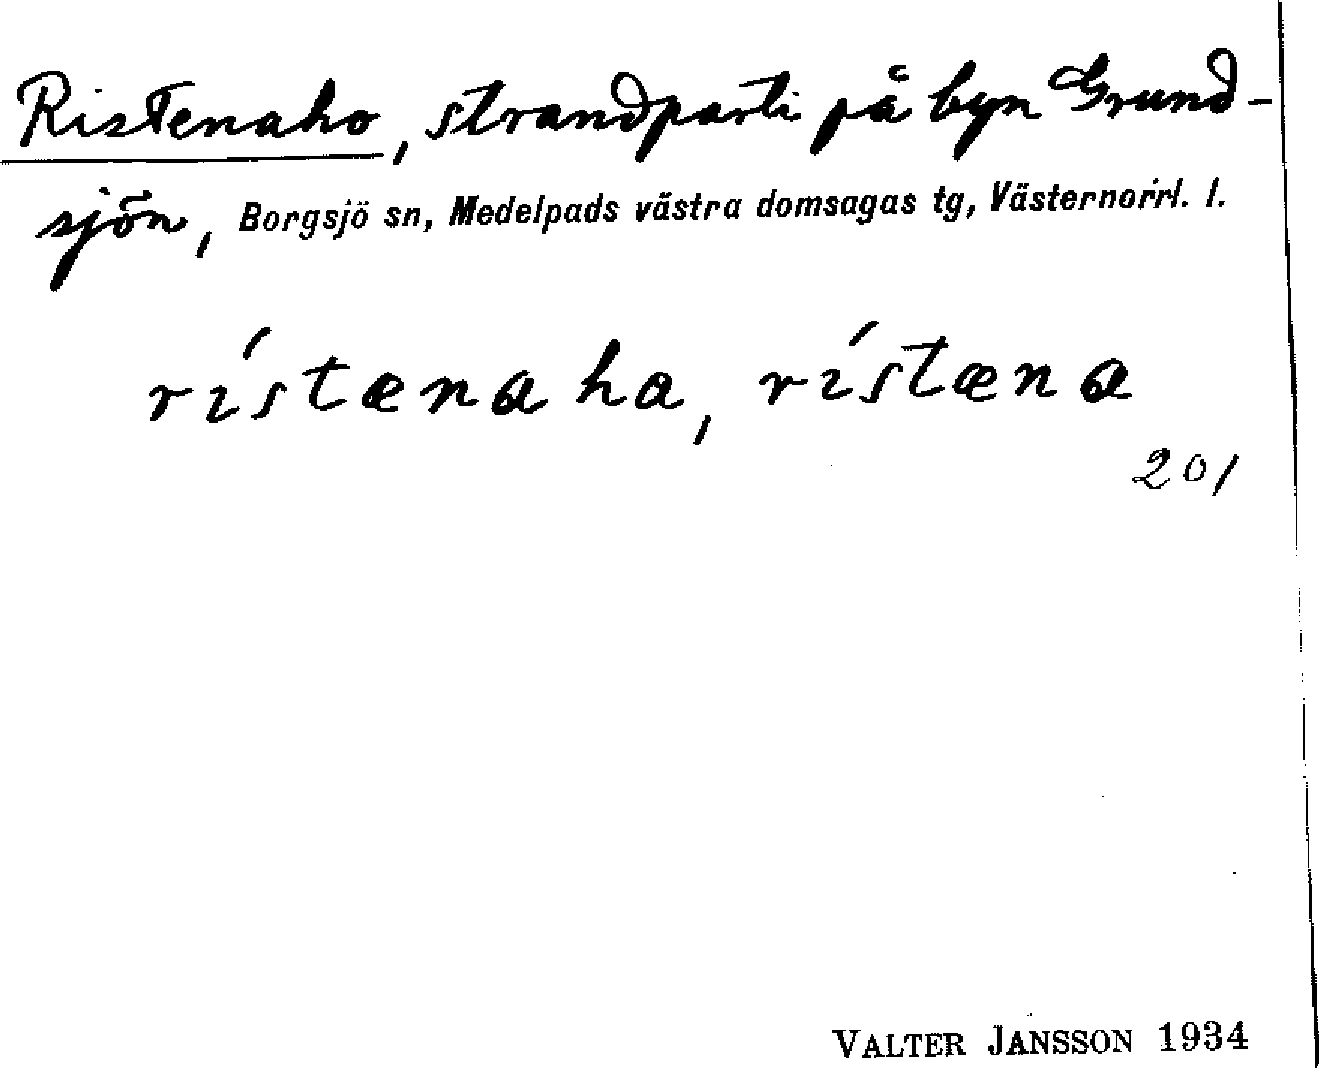 Ristenaho, strandparti på byn Grund-
sjön, Borgsjö sn, Medelpads västra domsagas tg, Västernorrl. l.
rístænaha, rístæna
201
VALTER JANSSON 1934